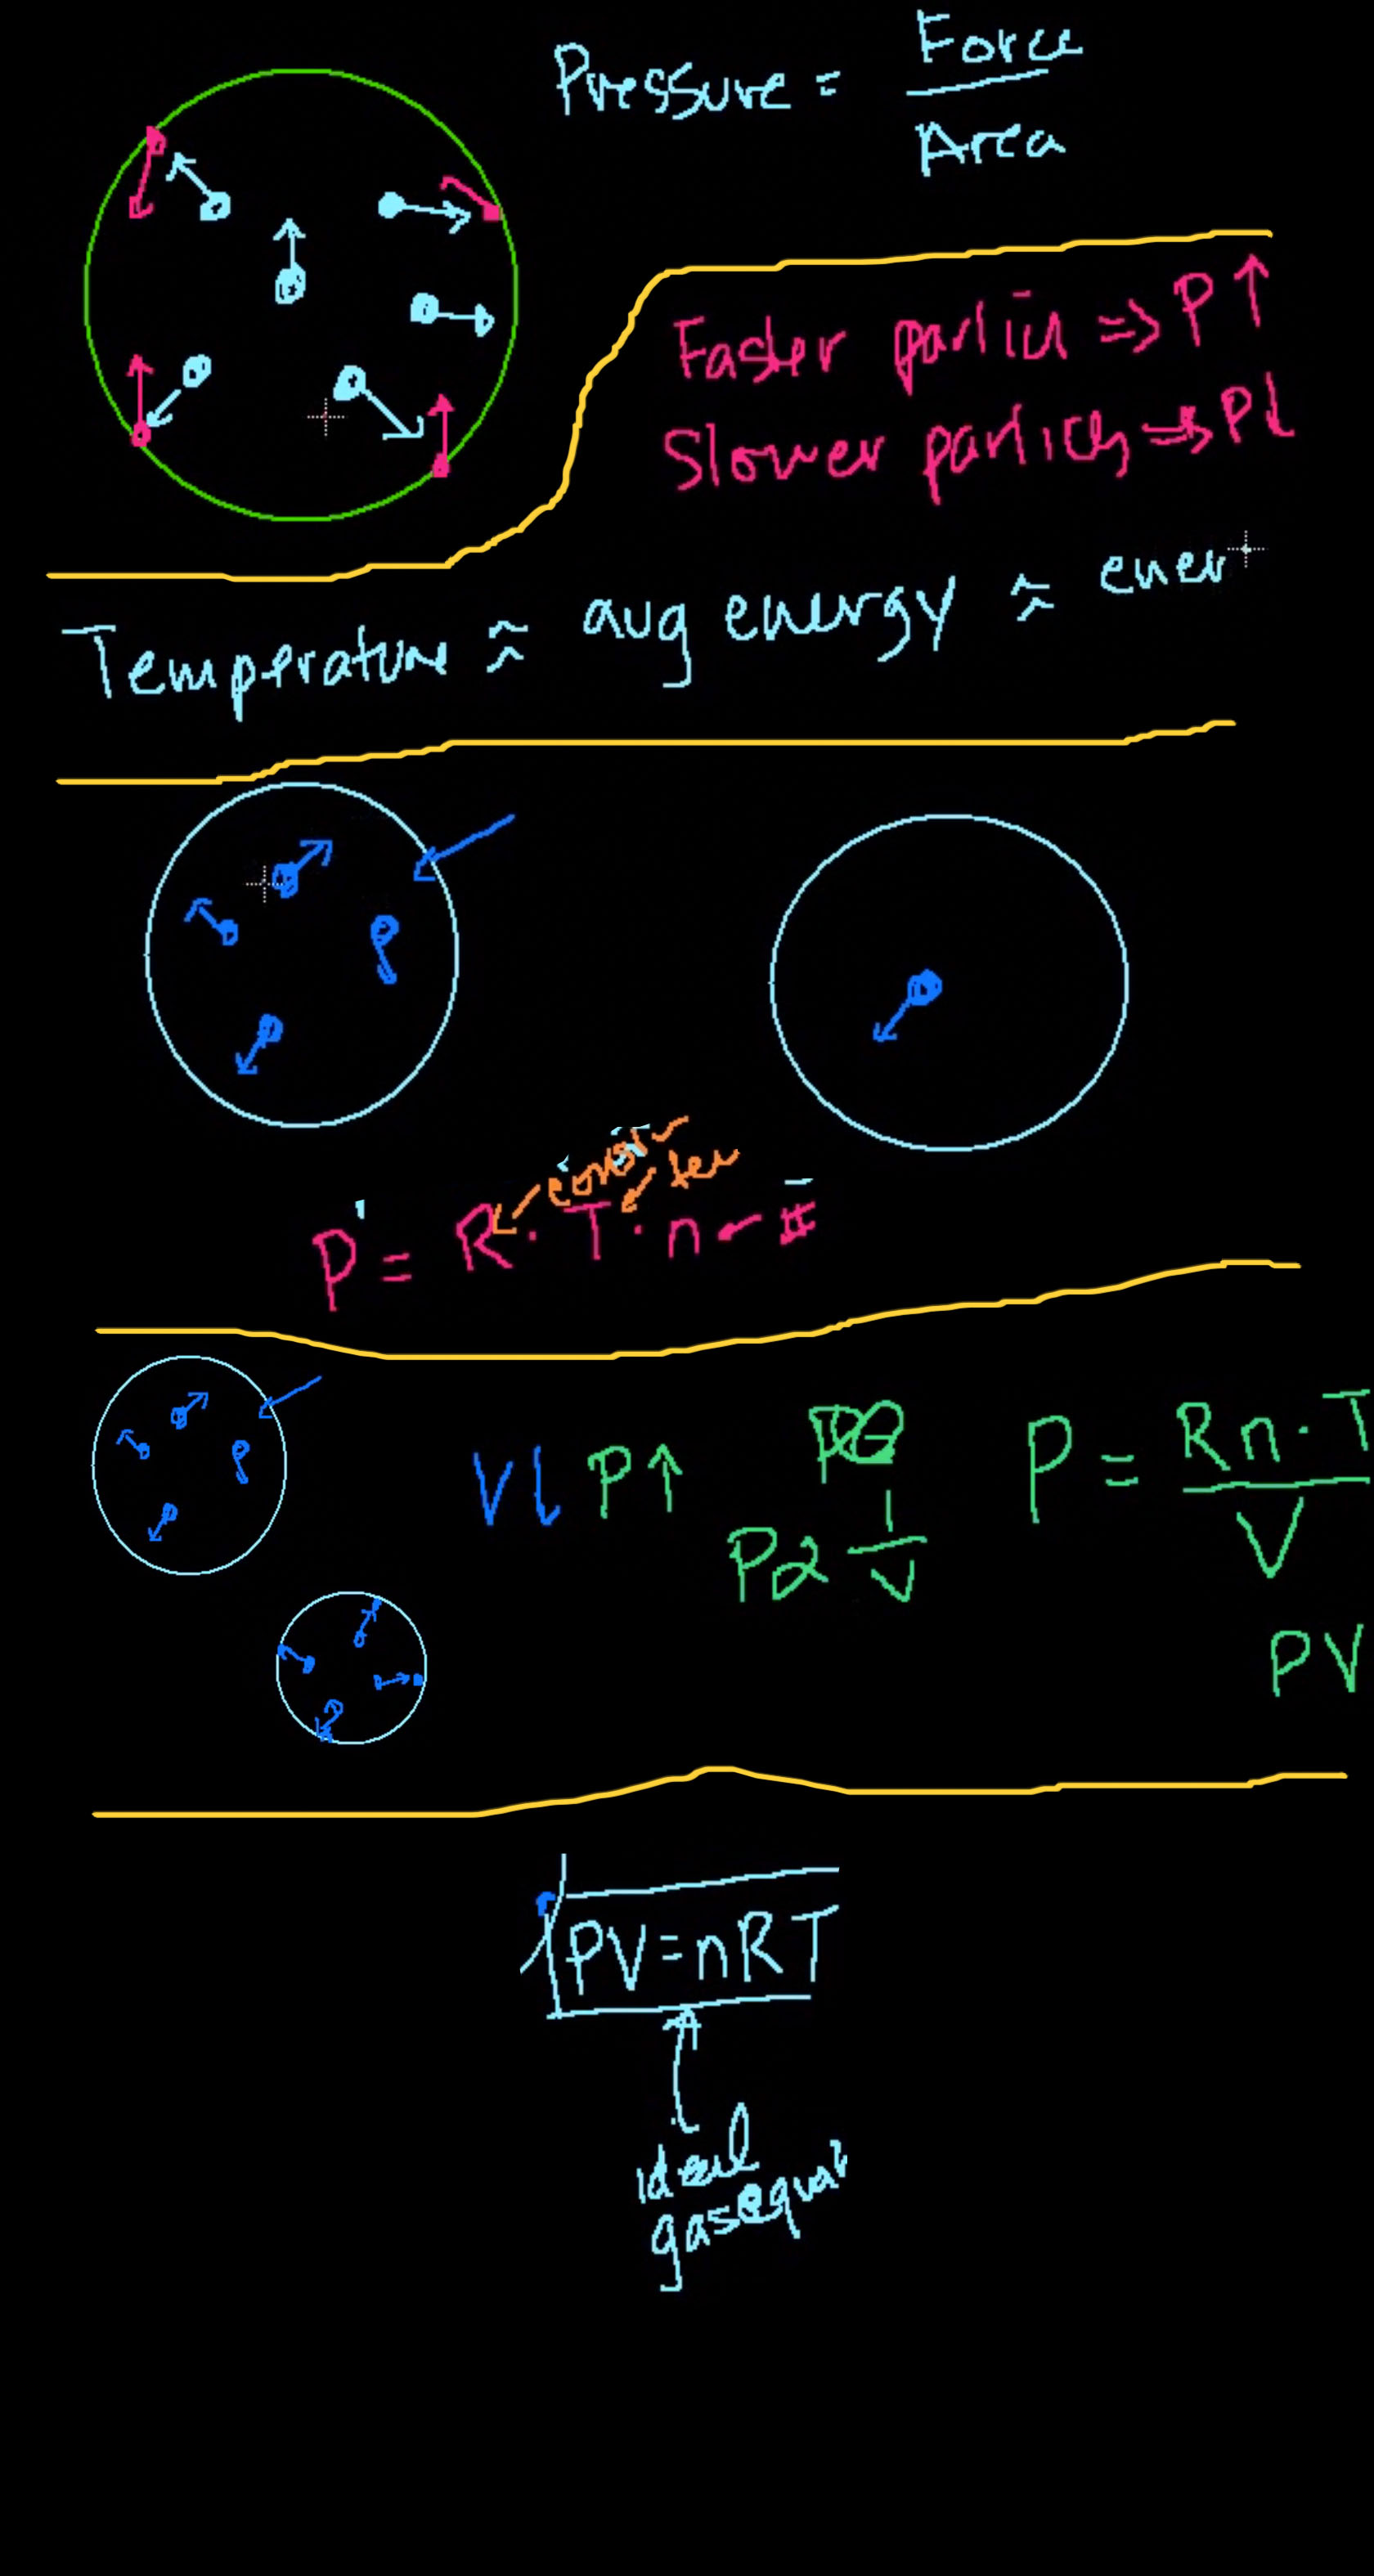 Pressure = Force / Area
Faster partic ⇒ P↑
Slower particles ⇒ P↓
Temperature ≈ avg energy ≈ ener
const
tem
P = R · T · n ← #
V↓ P↑
P α 1/V
P = Rn·T / V
PV
PV=nRT
ideal
gas equat